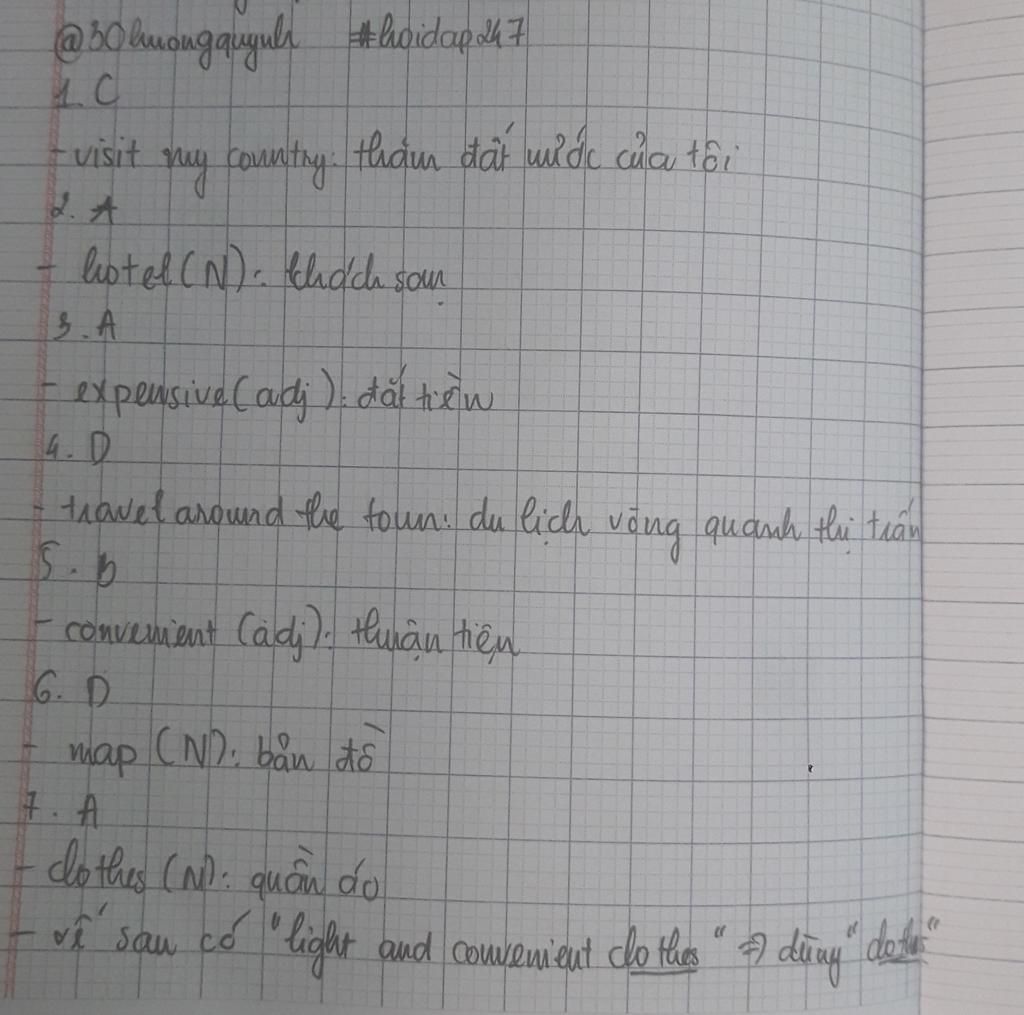 @30huongquynh #hoidap247
1. C
- visit my country: thăm đất nước của tôi
2. A
- hotel (N): khách sạn
3. A
- expensive (adj): đắt tiền
4. D
- travel around the town: du lịch vòng quanh thị trấn
5. D
- convenient (adj): thuận tiện
6. D
- map (N): bản đồ
7. A
- clothes (N): quần áo
- vế sau có "light and convenient clothes" => dùng "clothes"